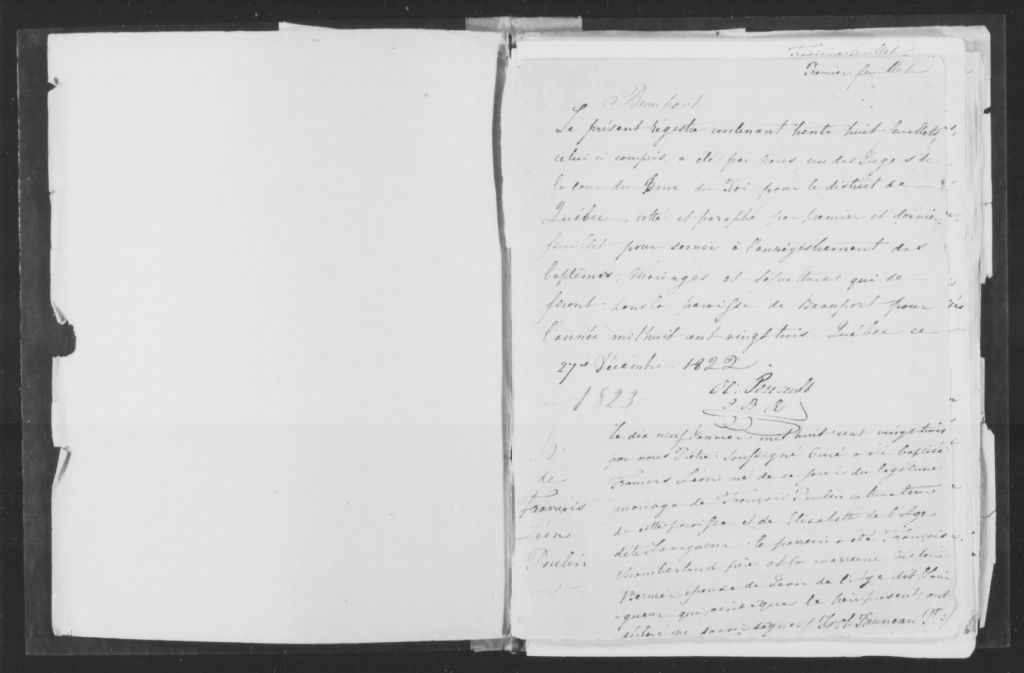 Troisième feuillet
Premier feuillet
Beauport
Le présent régistre contenant trente huit feuillets,
celui ci compris, a été par nous un des Juges de
la cour du Banc du Roi pour le district de
Québec, cotté et paraphé par premier et dernier
feuillet pour servir à l'enrégistrement des
baptêmes, Mariages et Sépultures qui se
feront dans la paroisse de Beauport pour
l'année mil huit cent vingt trois. Québec ce
27e Décembre 1822.
Perrault
1823
P B R
Le dix neuf Janvier mil huit cent vingt trois
par nous Prêtre soussigné Curé a été baptisé
B.
de
François
Léon
Poulin
François Léon né de ce jour du légitime
mariage de François Poulin cultivateur
de cette paroisse et de Elisabeth de l'Age
dite Lavigueur: le parrein a été François
Chamberland père et la marreine
épouse de Léon de l'Age dit Lavi
gueur qui ainsi que le père présent ont
déclaré ne savoir signer Bruneau Ptre